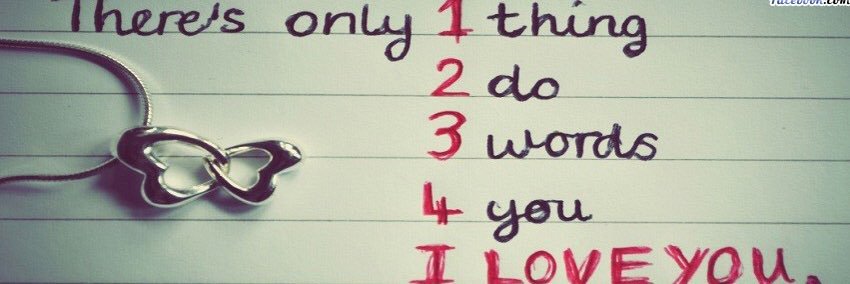 There's only 1 thing
2 do
3 words
4 you
I LOVE YOU.
facebook.com